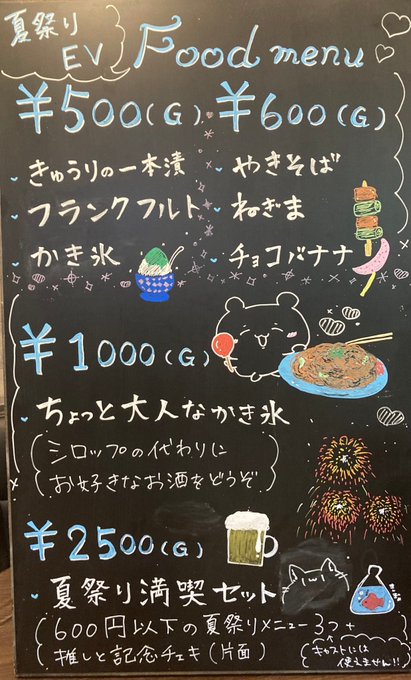 夏祭り
EV
Food menu
¥500(G)
きゅうりの一本漬
フランクフルト
かき氷
¥600(G)
やきそば
ねぎま
チョコバナナ
¥1000(G)
ちょっと大人なかき氷
(シロップの代わりに
お好きなお酒をどうぞ)
¥2500(G)
夏祭り満喫セット
(600円以下の夏祭りメニュー3つ+
推しと記念チェキ(片面)
↑
キャストには
使えません!!)